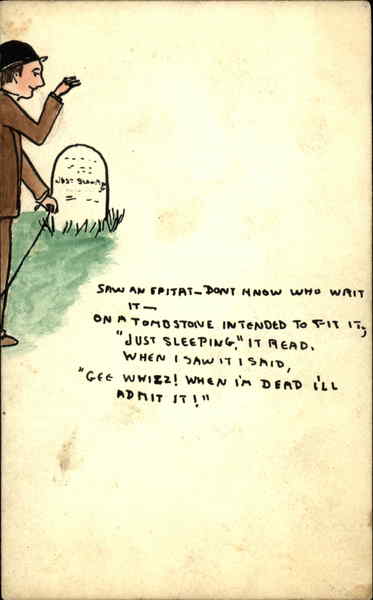 JUST SLEEPING
SAW AN EPITAT—DONT KNOW WHO WRIT
IT—
ON A TOMBSTONE INTENDED TO FIT IT,
"JUST SLEEPING," IT READ.
WHEN I SAW IT I SAID,
"GEE WHIZZ! WHEN I'M DEAD I'LL
ADMIT IT!"